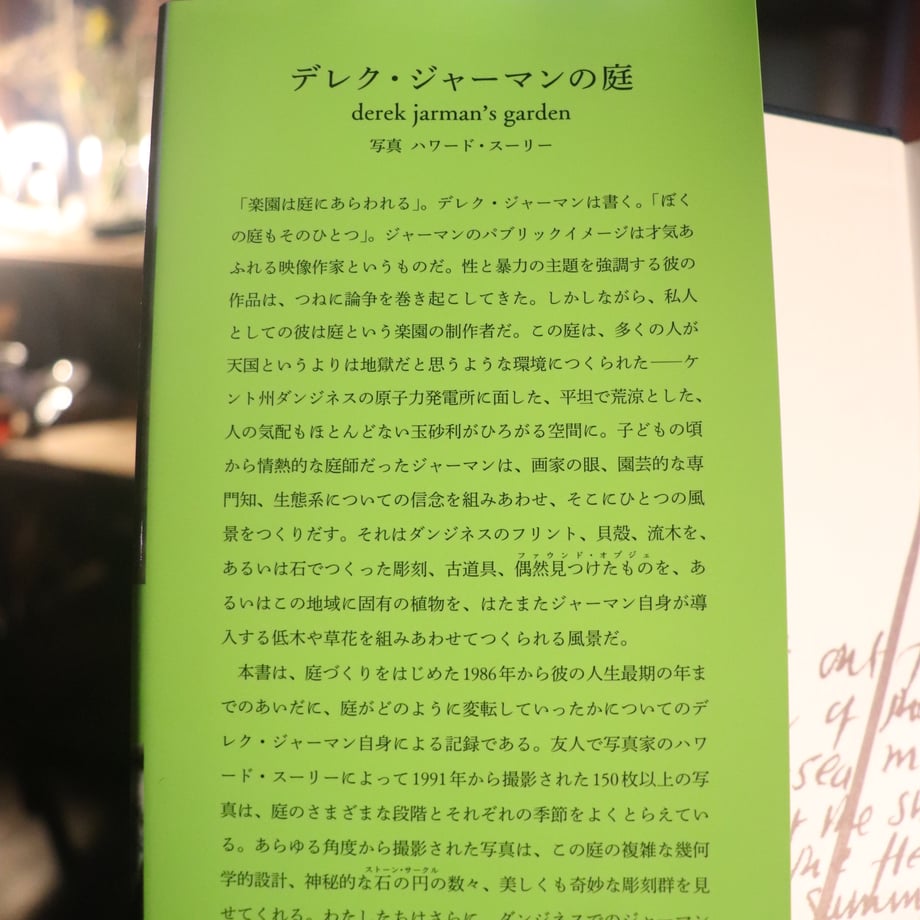 デレク・ジャーマンの庭
derek jarman's garden
写真 ハワード・スーリー
「楽園は庭にあらわれる」。デレク・ジャーマンは書く。「ぼく
の庭もそのひとつ」。ジャーマンのパブリックイメージは才気あ
ふれる映像作家というものだ。性と暴力の主題を強調する彼の
作品は、つねに論争を巻き起こしてきた。しかしながら、私人
としての彼は庭という楽園の制作者だ。この庭は、多くの人が
天国というよりは地獄だと思うような環境につくられた――ケ
ント州ダンジネスの原子力発電所に面した、平坦で荒涼とした、
人の気配もほとんどない玉砂利がひろがる空間に。子どもの頃
から情熱的な庭師だったジャーマンは、画家の眼、園芸的な専
門知、生態系についての信念を組みあわせ、そこにひとつの風
景をつくりだす。それはダンジネスのフリント、貝殻、流木を、
ファウンド・オブジェ
あるいは石でつくった彫刻、古道具、偶然見つけたものを、あ
るいはこの地域に固有の植物を、はたまたジャーマン自身が導
入する低木や草花を組みあわせてつくられる風景だ。
本書は、庭づくりをはじめた1986年から彼の人生最期の年ま
でのあいだに、庭がどのように変転していったかについてのデ
レク・ジャーマン自身による記録である。友人で写真家のハワ
ード・スーリーによって1991年から撮影された150枚以上の写
真は、庭のさまざまな段階とそれぞれの季節をよくとらえてい
る。あらゆる角度から撮影された写真は、この庭の複雑な幾何
ストーン・サークル
学的設計、神秘的な石の円の数々、美しくも奇妙な彫刻群を見
せてくれる。わたしたちはさらに、ダンジネスでのジャーマン
out
of
sea m
the
summ